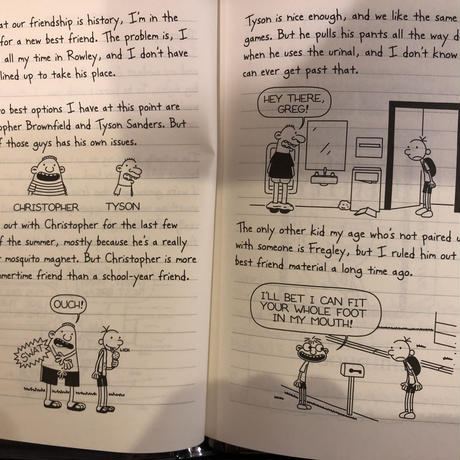 at our friendship is history, I'm in the
for a new best friend. The problem is, I
all my time in Rowley, and I don't have
lined up to take his place.
o best options I have at this point are
opher Brownfield and Tyson Sanders. But
f those guys has his own issues.
CHRISTOPHER TYSON
out with Christopher for the last few
f the summer, mostly because he's a really
mosquito magnet. But Christopher is more
mertime friend than a school-year friend.
OUCH!
SWAT
Tyson is nice enough, and we like the same
games. But he pulls his pants all the way d
when he uses the urinal, and I don't know
can ever get past that.
HEY THERE,
GREG!
The only other kid my age who's not paired u
with someone is Fregley, but I ruled him out
best friend material a long time ago.
I'LL BET I CAN FIT
YOUR WHOLE FOOT
IN MY MOUTH!